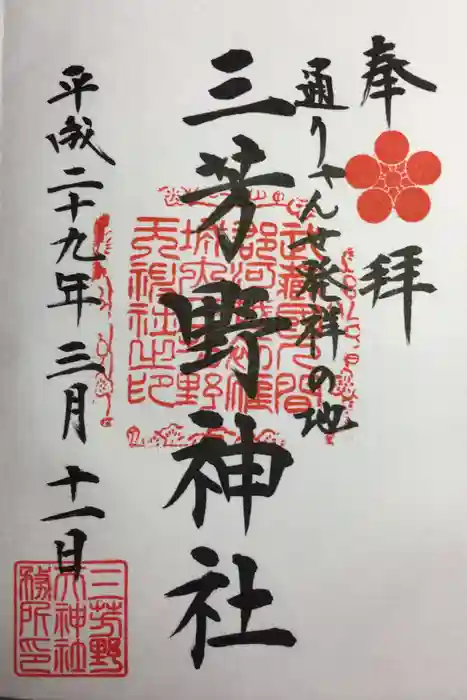 奉拝
通りゃんせ発祥の地
三芳野神社
平成二十九年三月十一日
三芳野
神社
務所印